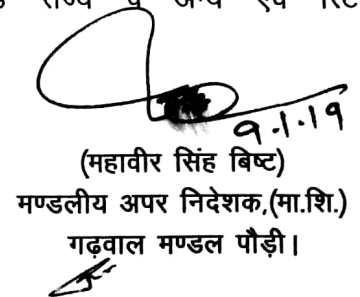 राज्य व अन्य एवं
9.1.19
(महावीर सिंह बिष्ट)
मण्डलीय अपर निदेशक,(मा.शि.)
गढ़वाल मण्डल पौड़ी।